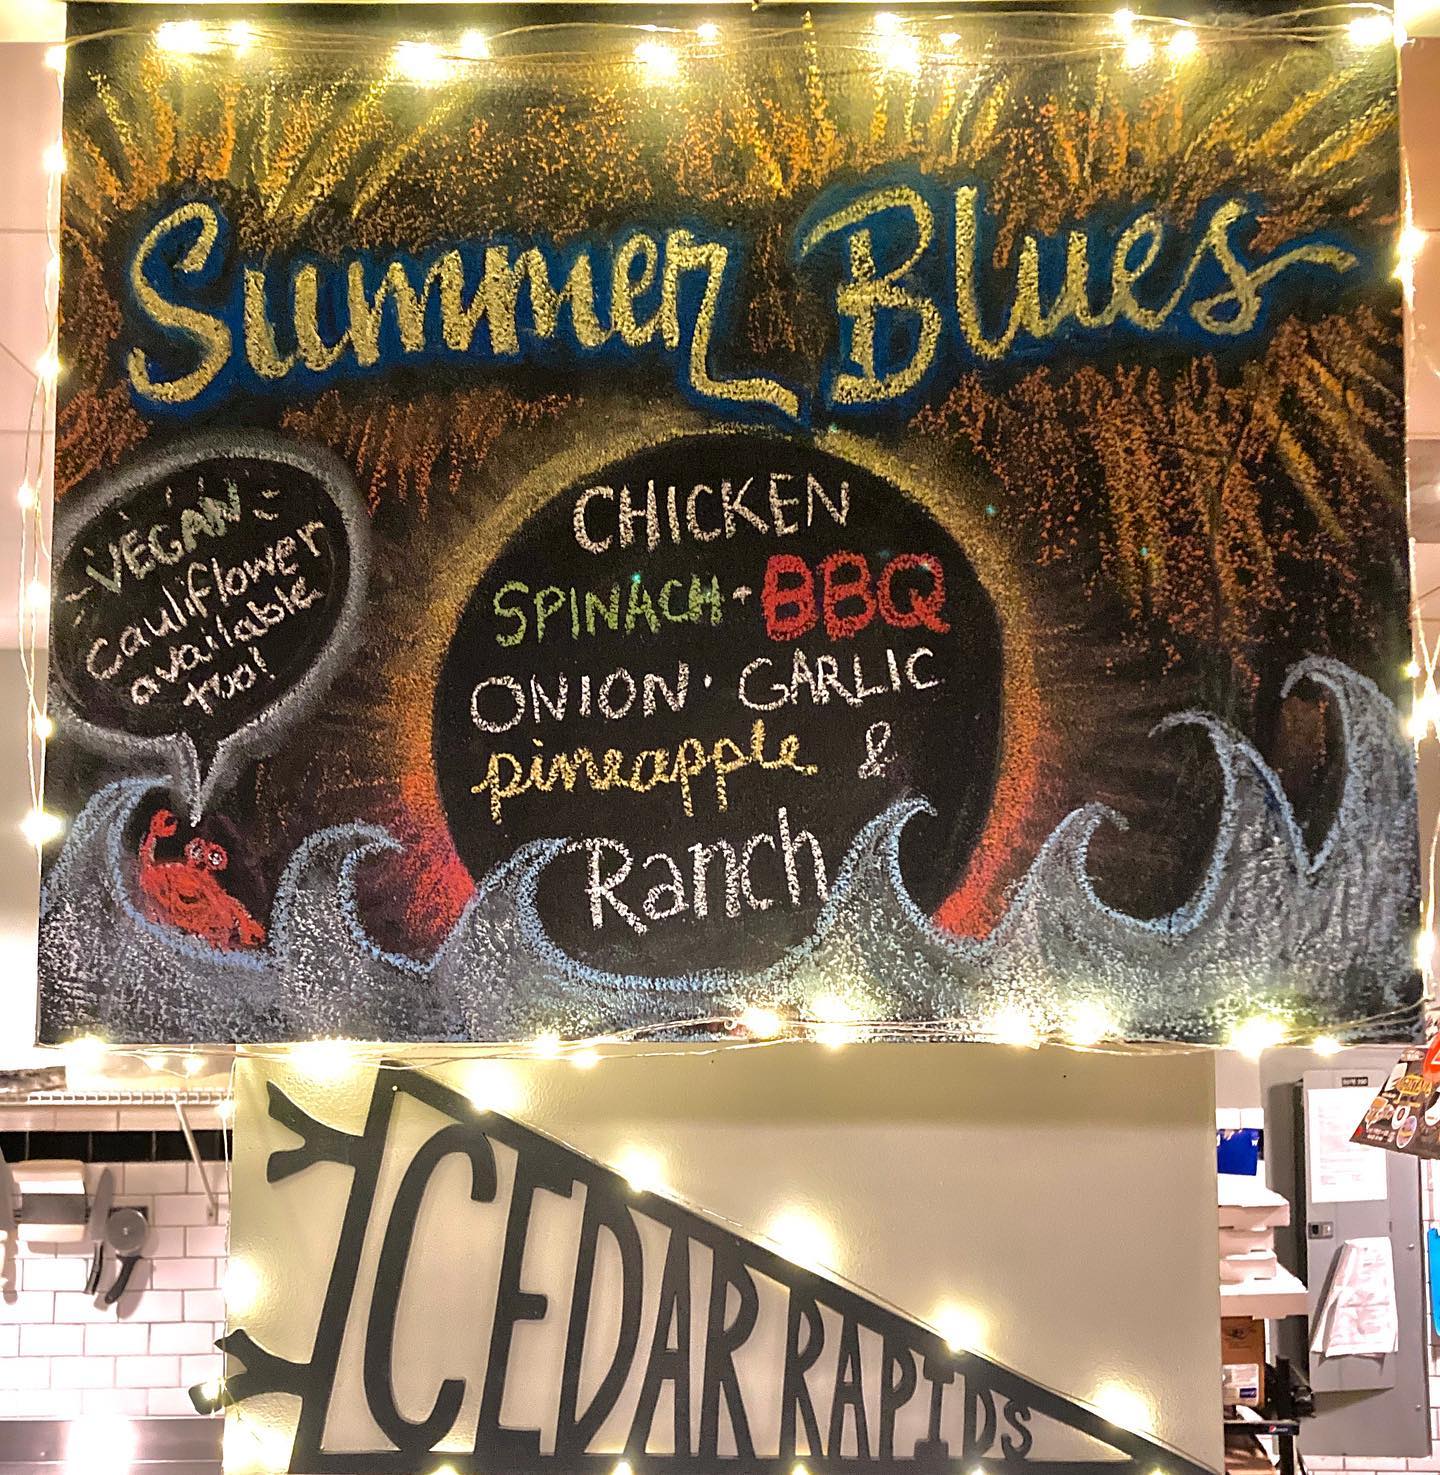 Summer Blues
VEGAN
cauliflower
available
too!
CHICKEN
SPINACH · BBQ
ONION · GARLIC
pineapple &
Ranch
CEDAR RAPIDS